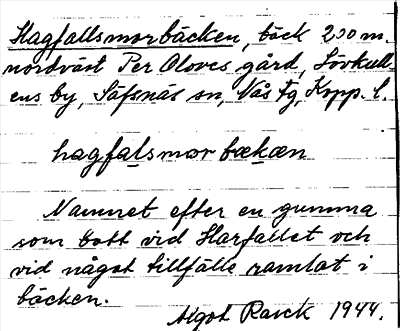 Hagfallsmorbäcken, bäck 200 m.
nordväst Per Olovs gård, Lövkull-
ens by, Säfsnäs sn, Nås fg, Kopp. l.
hagfalsmor bækæn
Namnet efter en gumma
som bott vid Harfallet och
vid något tillfälle ramlat i
bäcken.
Algot Rasck 1944.